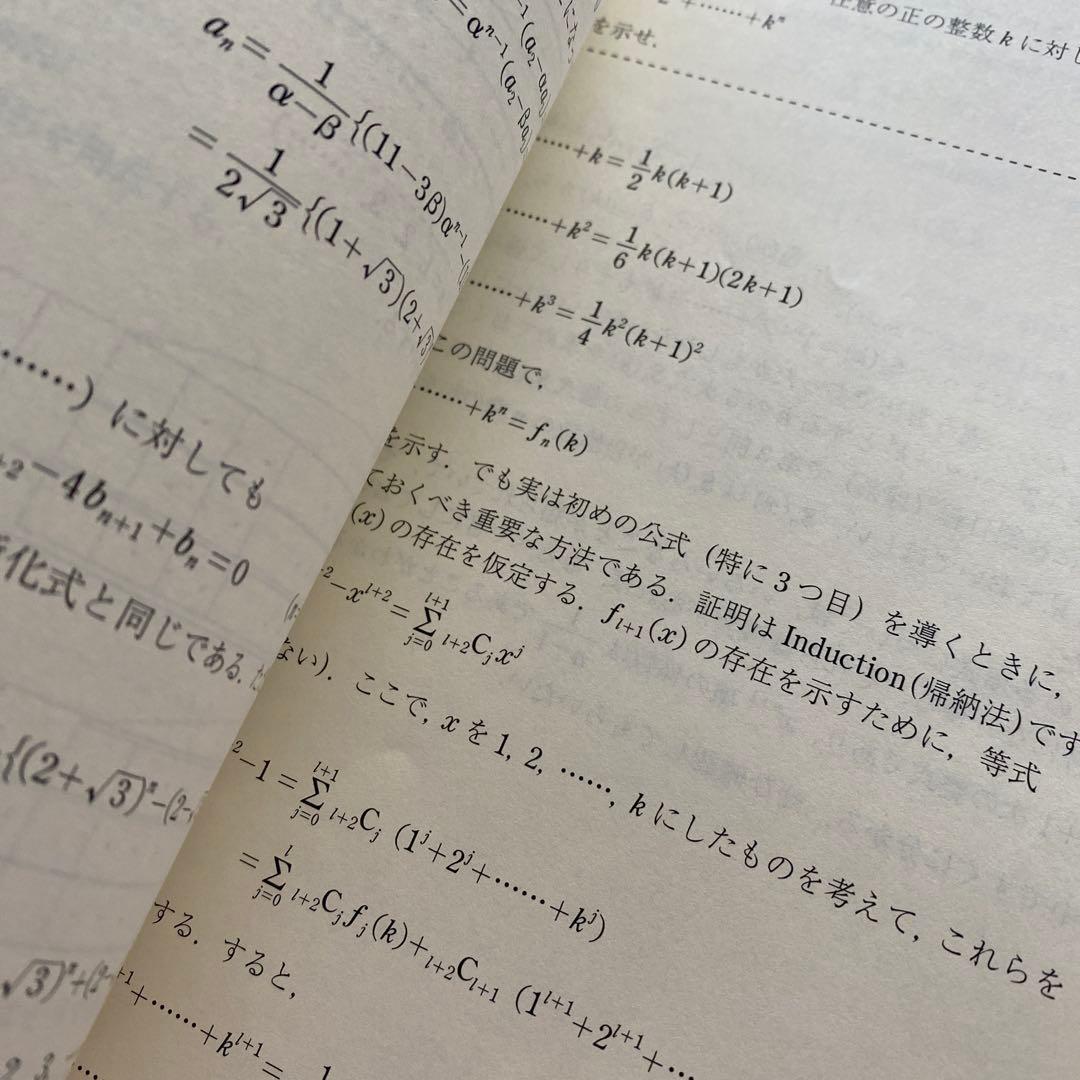 a_n = \frac{1}{α-β}{(11-3β)α^{n-1}-
= \frac{1}{2\sqrt{3}}{(1+\sqrt{3})(2+\sqrt{3}
……) に対しても
+2 -4b_{n+1}+b_n=0
化式と同じである.
{(2+\sqrt{3})^n-(2-
\sqrt{3})^n+(2-
+……+k^n
任意の正の整数 k に対し
を示せ.
……+k=\frac{1}{2}k(k+1)
……+k^2=\frac{1}{6}k(k+1)(2k+1)
……+k^3=\frac{1}{4}k^2(k+1)^2
この問題で,
……+k^n=f_n(k)
を示す. でも実は初めの公式 (特に 3 つ目) を導くときに,
ておくべき重要な方法である. 証明は Induction (帰納法) です
(x) の存在を仮定する. f_{l+1}(x) の存在を示すために, 等式
-x^{l+2}=\sum_{j=0}^{l+1} {}_{l+2}C_j x^j
ない). ここで, x を 1, 2, ……, k にしたものを考えて, これらを
-1=\sum_{j=0}^{l+1} {}_{l+2}C_j (1^j+2^j+……+k^j)
=\sum_{j=0}^{l} {}_{l+2}C_j f_j(k)+{}_{l+2}C_{l+1} (1^{l+1}+2^{l+1}+…
する. すると,
+……+k^{l+1}=